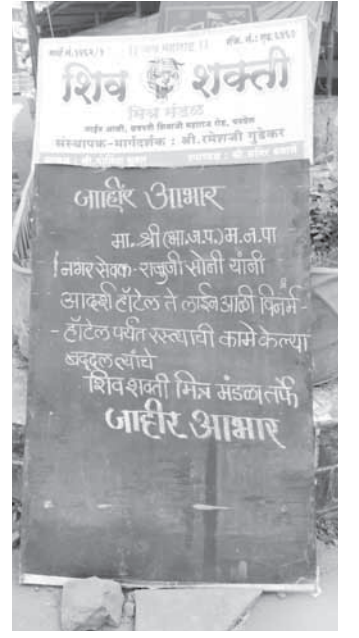 || जय महाराष्ट्र ||
शिव शक्ती
मित्र मंडळ
लाईन आळी, छत्रपती शिवाजी महाराज रोड, पनवेल
संस्थापक-मार्गदर्शक : श्री.रमेशजी गुडेकर
जाहीर आभार
मा. श्री (भा.ज.प.) म.न.पा
नगर सेवक - राजुजी सोनी यांनी
आदर्श हॉटेल ते लाईन आळी विनम्र -
- हॉटेल पर्यंत रस्त्याची कामे केल्या
बद्दल त्यांचे
शिव शक्ती मित्र मंडळा तर्फे
जाहीर आभार